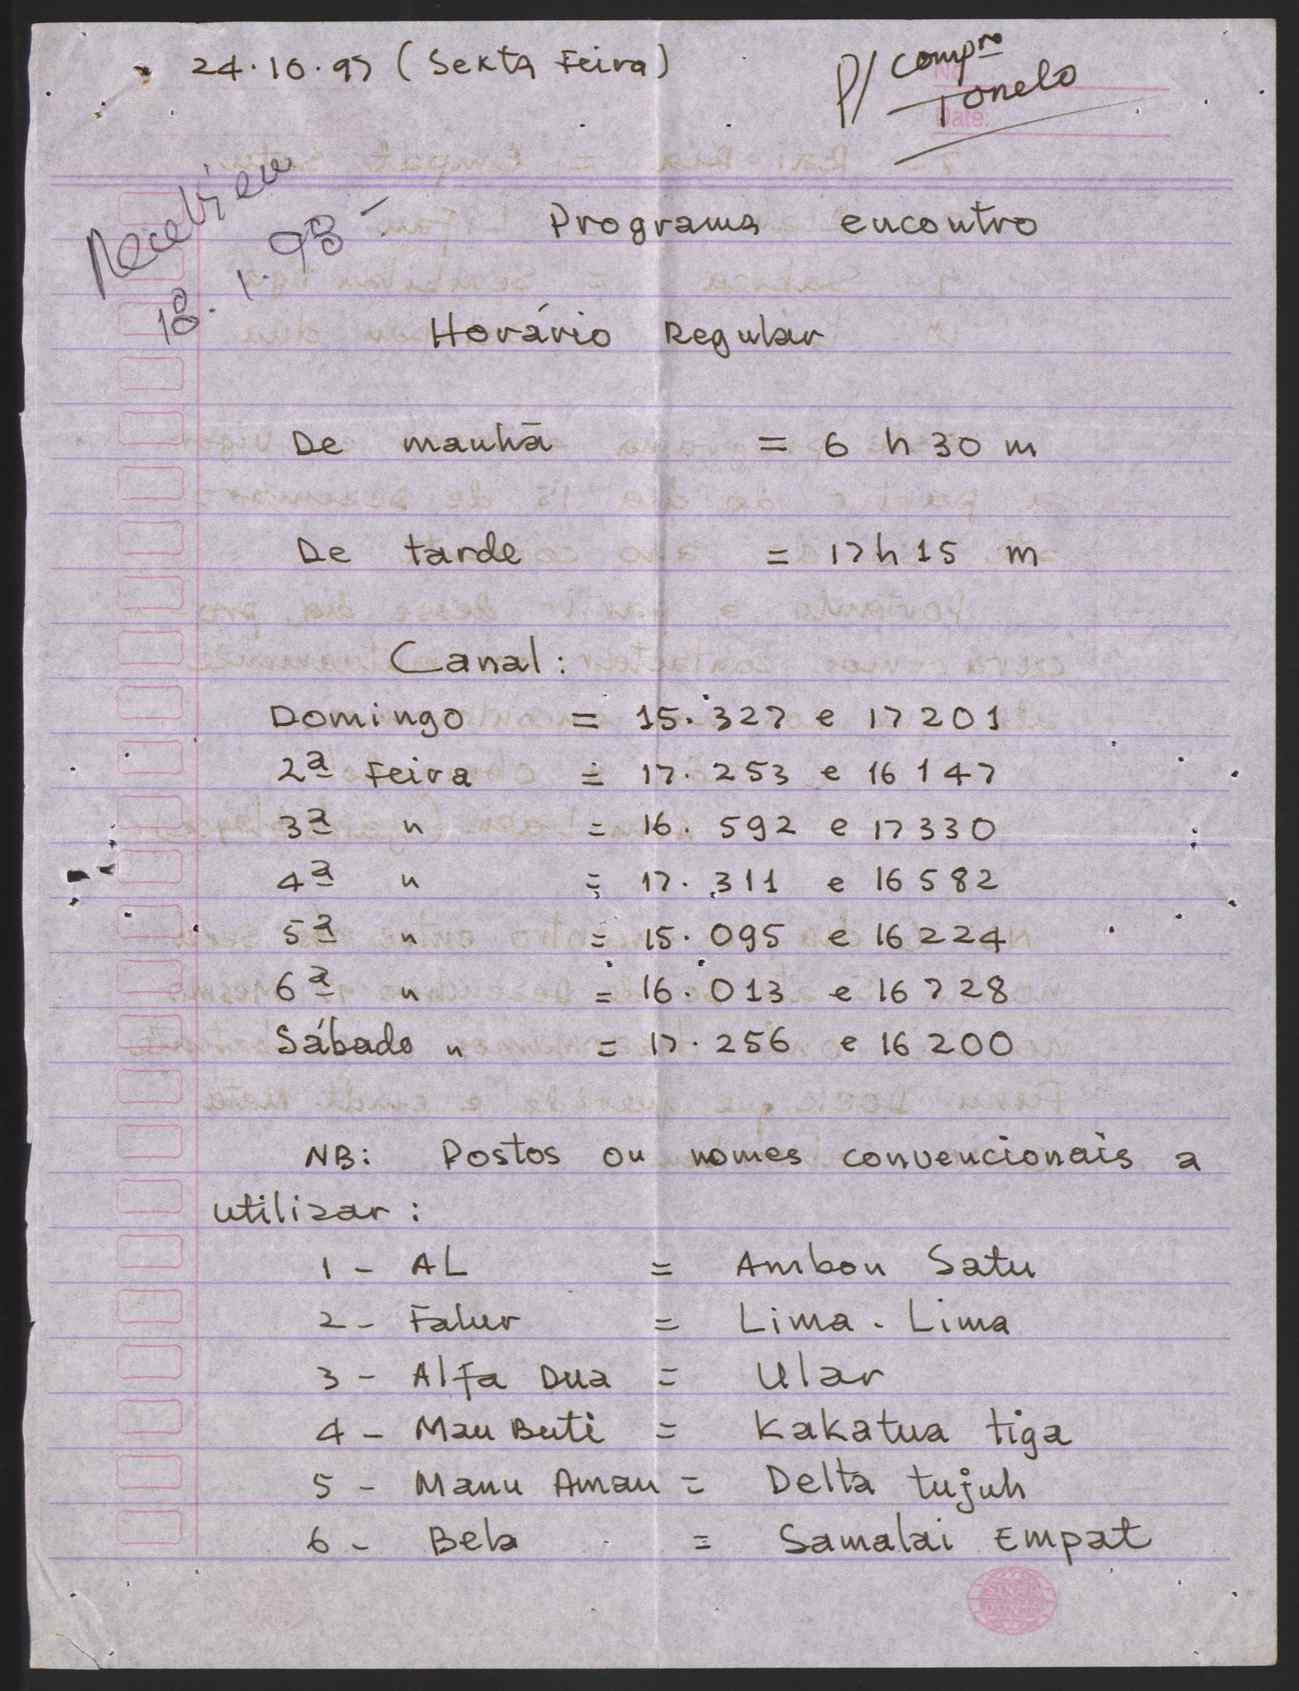 24.10.97 (Sexta Feira)
P/ Compº
Tonelo
No:
Date:
Recebi em
18.1.98 -
Programa encontro
Horário Regular
De manhã = 6 h 30 m
De tarde = 17 h 15 m
Canal:
Domingo = 15.327 e 17201
2ª Feira = 17.253 e 16147
3ª " = 16.592 e 17330
4ª " = 17.311 e 16582
5ª " = 15.095 e 16224
6ª " = 16.013 e 16728
Sábado " = 17.256 e 16200
NB: Postos ou nomes convencionais a
utilizar:
1 - AL = Ambon Satu
2 - Falur = Lima - Lima
3 - Alfa Dua = Ular
4 - Mau Buti = Kakatua tiga
5 - Manu Aman = Delta tujuh
6 - Bela = Samalai Empat